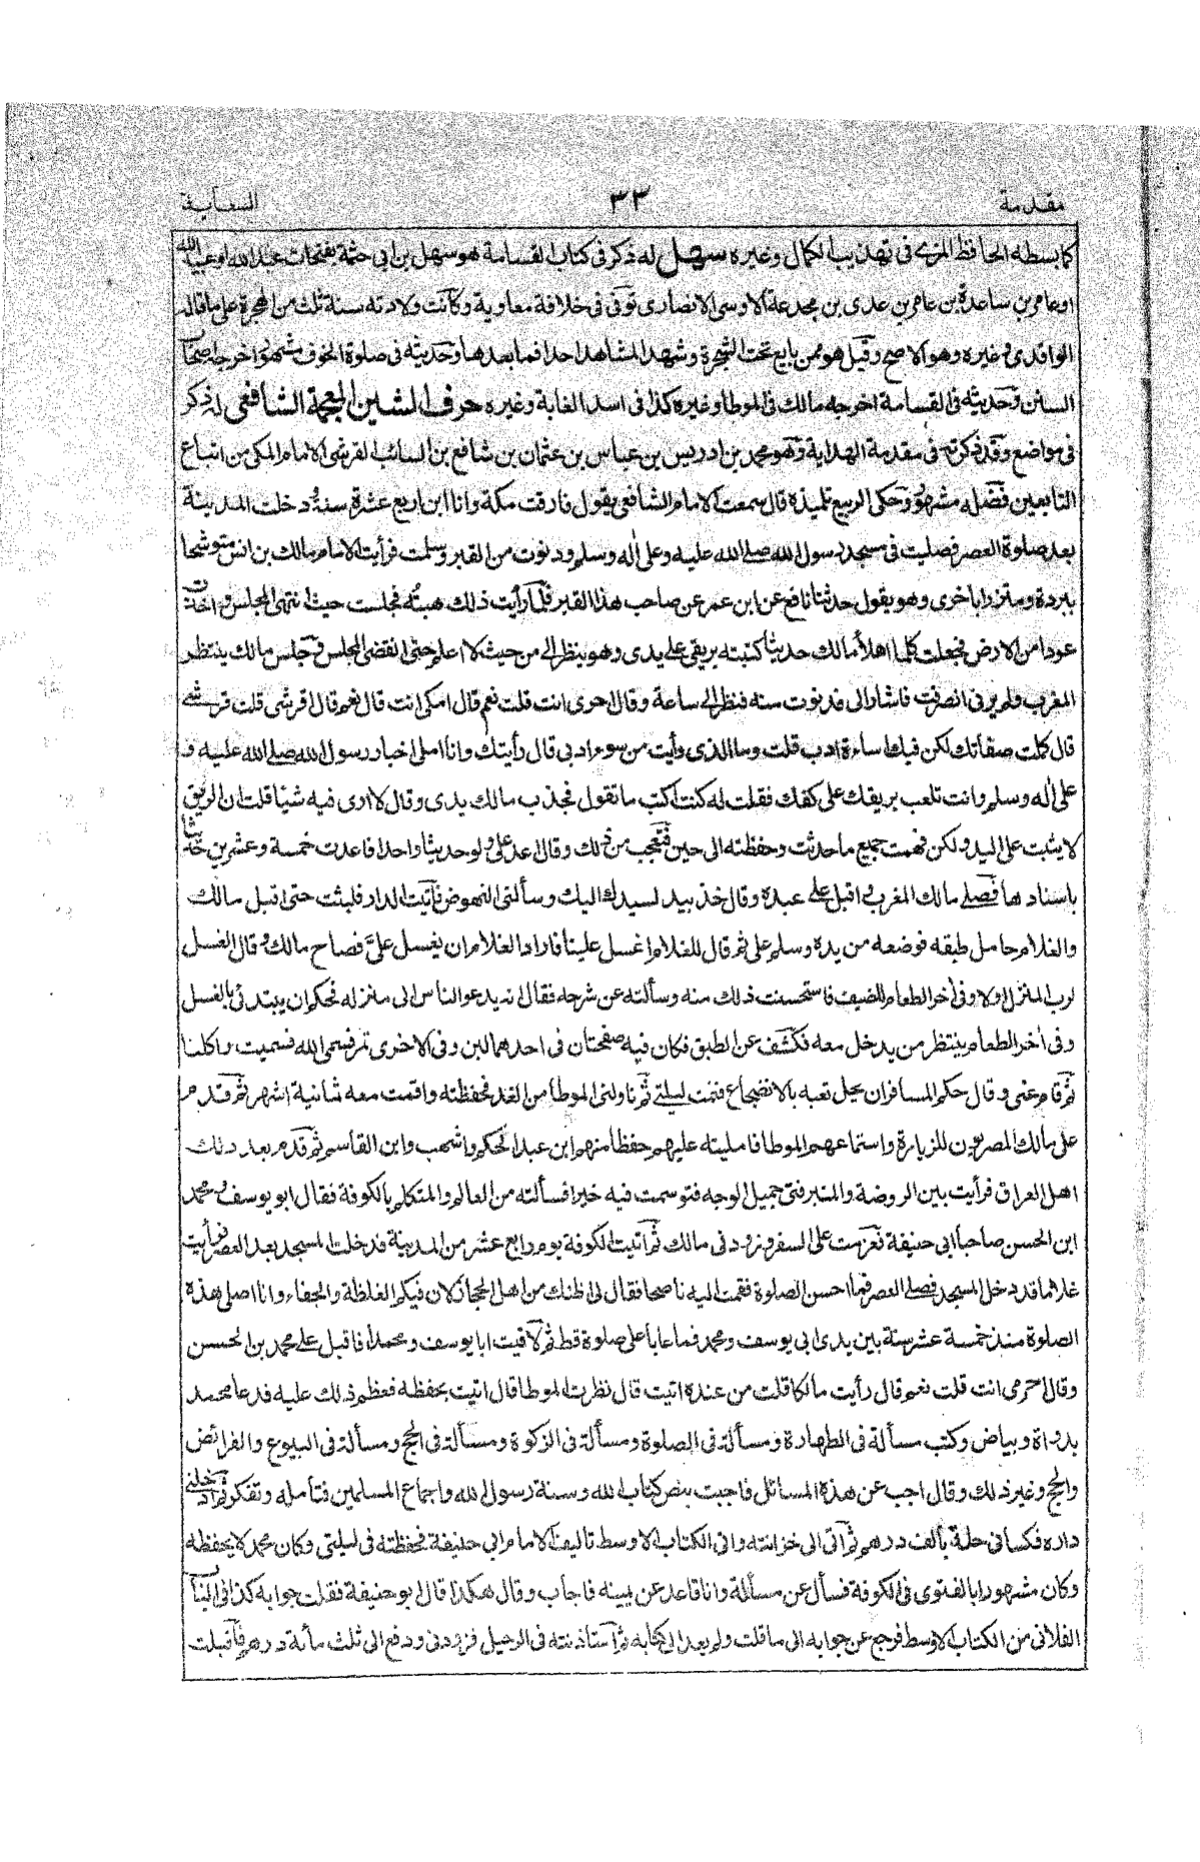 مقدمة ٣٣ السعاية
كما بسطه الحافظ المزى فى تهذيب الكمال وغيره سهل له ذكر فى كتاب القسامة هو سهل بن ابى حثمة بفتحات عبد الله او عبيد الله
او عامر بن ساعدة بن عامر بن عدى بن مجدعة الاوسى الانصارى توفى فى خلافة معاوية وكانت ولادته سنة ثلث من الهجرة على ما قاله
الواقدى وغيره وهو الاصح وقيل هو ممن بايع تحت الشجرة وشهد المشاهد احدا فما بعدها وحديثه فى صلوة الخوف مشهور اخرجه اصحاب
السنن وحديثه فى القسامة اخرجه مالك فى الموطا وغيره كذا فى اسد الغابة وغيره حرف الشين المعجمة الشافعى له ذكر
فى مواضع وقد ذكرته فى مقدمة الهداية وهو محمد بن ادريس بن عباس بن عثمان بن شافع بن السائب القرشى الامام المكى من اتباع
التابعين فضله مشهور وحكى الربيع تلميذه قال سمعت الامام الشافعى يقول فارقت مكة وانا ابن اربع عشرة سنة ودخلت المدينة
بعد صلوة العصر فصليت فى مسجد رسول الله صلى الله عليه وعلى اله وسلم ودنوت من القبر وسلمت فرأيت الامام مالك بن انس متوشحا
ببردة ومتزرا باخرى وهو يقول حدثنا نافع عن ابن عمر عن صاحب هذا القبر فلما رأيت ذلك هبته فجلست حيث انتهى المجلس واخذت
عودا من الارض فجعلت كلما املأ مالك حديثا كتبته بريقى على يدى وهو ينظر الى من حيث لا اعلم حتى انقضى المجلس وجلس مالك ينتظر
المغرب ولم يرنى انصرفت فاشار الى فدنوت منه فنظر الى ساعة وقال احرمى انت قلت نعم قال امكى انت قال نعم قال اقرشى قلت قرشى
قال كملت صفاتك لكن فيك اساءة ادب قلت وما الذى رأيت من سوء ادبى قال رأيتك وانا املى اخبار رسول الله صلى الله عليه و
على اله وسلم وانت تلعب بريقك على كفك فقلت له كنت اكتب ما تقول فجذب مالك يدى وقال لا ارى فيه شيئا قلت ان الريق
لا يثبت على اليد ولكن فهمت جميع ما حدثت وحفظته الى حين فتعجب من ذلك وقال اعد على ولو حديثا واحدا فاعدت خمسة وعشرين حديثا
باسنادها فصلى مالك المغرب واقبل على عبده وقال خذ بيد لسيدك اليك وسألنى النهوض فاتيت الدار فلبثت حتى اقبل مالك
والغلام حامل طبقه فوضعه من يده وسلم على ثم قال للغلام اغسل علينا فاراد الغلام ان يغسل علىّ فصاح مالك وقال الغسل
لرب المنزل اولا وفى أخر الطعام للضيف فاستحسنت ذلك منه وسألته عن شرحه فقال انه يدعو الناس الى منزله فحكم ان يبتدئ بالغسل
وفى أخر الطعام ينتظر من يدخل معه فكشف عن الطبق فكان فيه صفحتان فى احدهما لبن وفى الاخرى تمر فسمى الله فسميت واكلنا
ثم قام عنى وقال حكم المسافر ان يحل تعبه بالانضجاع فنمت ليلتى ثم ناولنى الموطا من الغد فحفظته واقمت معه ثمانية اشهر ثم قدم
على مالك المصريون للزيارة واستماعهم الموطا فامليته عليهم حفظا منهم ابن عبد الحكم واشهب وابن القاسم ثم قدم بعد ذلك
اهل العراق فرأيت بين الروضة والمنبر فتى جميل الوجه فتوسمت فيه خيرا فسألته من العالم والمتكلم بالكوفة فقال ابو يوسف ومحمد
ابن الحسن صاحبا ابى حنيفة فعزمت على السفر وزودنى مالك ثم اتيت الكوفة يوم رابع عشر من المدينة فدخلت المسجد بعد العصر فرأيت
غلاما قد دخل المسجد فصلى العصر فما احسن الصلوة فقمت اليه ناصحا فقال لى اظنك من اهل الحجاز لان فيكم الغلظة والجفاء وانا اصلى هذه
الصلوة منذ خمسة عشر سنة بين يدى ابى يوسف ومحمد فما عابا على صلوة قط ثم لاقيت ابا يوسف ومحمدا فاقبل على محمد بن الحسن
وقال احرمى انت قلت نعم قال رأيت مالكا قلت من عنده اتيت قال نظرت الموطا قال اتيت بحفظه فعظم ذلك عليه فدعا محمد
بدواة وبياض وكتب مسألة فى الطهارة ومسألة فى الصلوة ومسألة فى الزكوة ومسألة فى الحج ومسألة فى البيوع والفرائض
والحج وغير ذلك وقال اجب عن هذه المسائل فاجبت بنص كتاب الله وسنة رسول الله واجماع المسلمين فتأمله وتفكر فادخلنى
داره فكسانى حلة بألف درهم ثم اتى الى خزانته واتى الكتاب الاوسط تاليف الامام ابى حنيفة فحفظته فى ليلتى وكان محمد لا يحفظه
وكان مشهورا بالفتوى فى الكوفة فسأل عن مسألة وانا قاعد عن يمينه فاجاب وقال هكذا قال ابو حنيفة فقلت جوابه كذا فى الباب
الفلانى من الكتاب الاوسط فرجع عن جوابه الى ما قلت ولم يعد الى كتابه ثم استاذنته فى الرحيل فزودنى ودفع الى ثلث مأة درهم فاقبلت